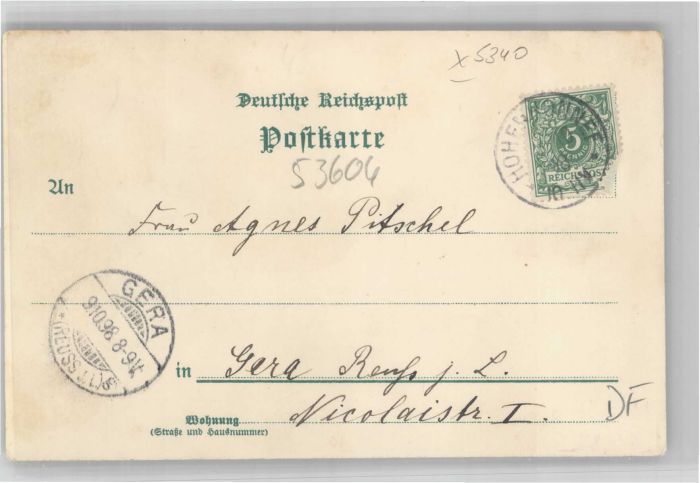 x 5340
Deutsche Reichspost
Postkarte
53604
An
Frau Agnes Pitschel
5
REICHSPOST
GERA
9.10.98 8-9V.
(REUSS)
in Gera Reuß j. L.
Nicolaistr. I.
Wohnung
(Straße und Hausnummer)
DF